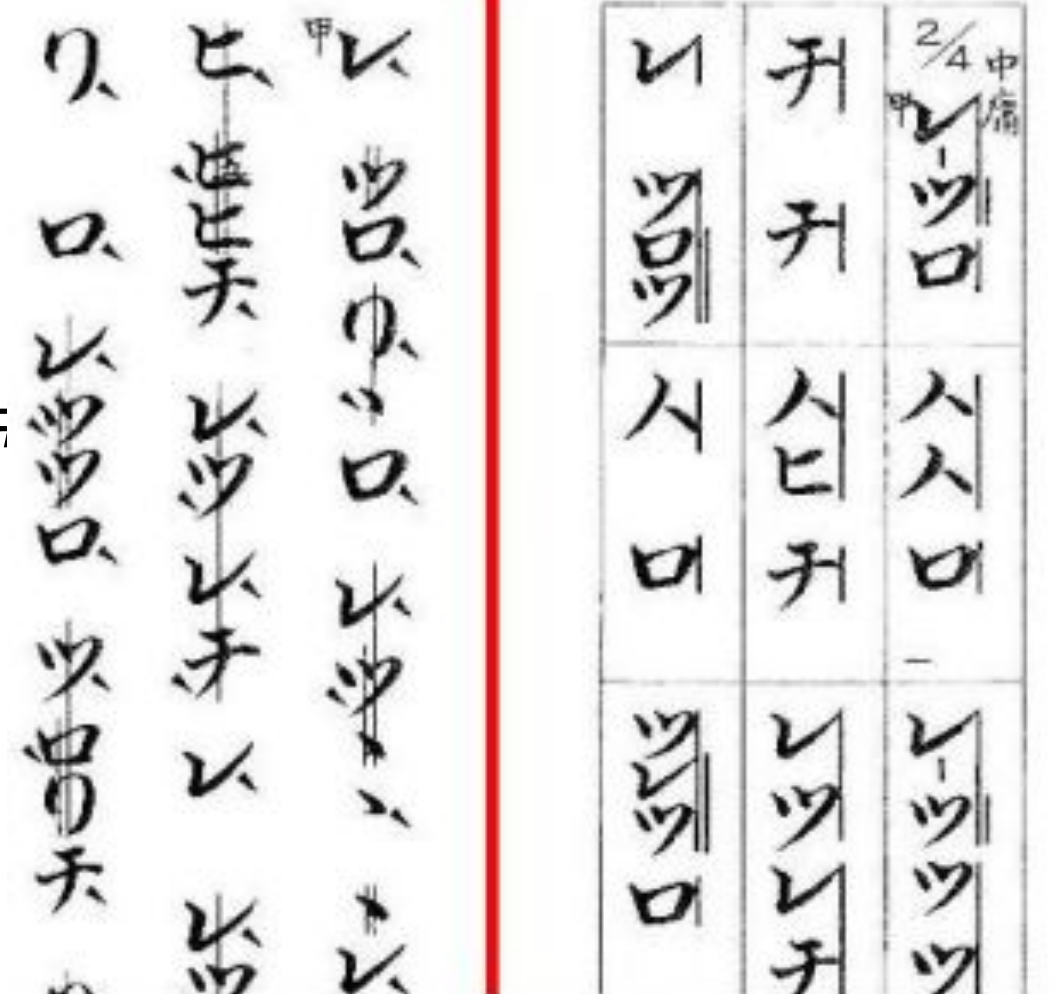 2/4 中庸
甲レーツロハハローレーツツツ
チチハヒチレツレチ
レツロツハロツレツロ
甲レツロリロレツレ
ヒヒヒチレツレチレレツ
リロレツツロツロリチ